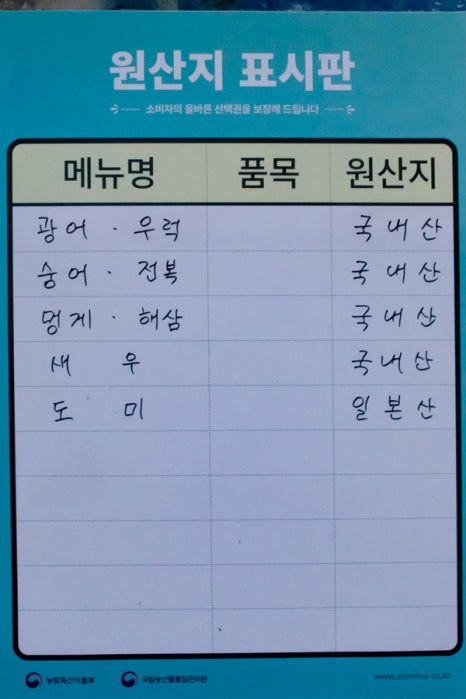 원산지 표시판
소비자의 올바른 선택권을 보장해 드립니다
메뉴명 품목 원산지
광어 · 우럭 국내산
숭어 · 전복 국내산
멍게 · 해삼 국내산
새우 국내산
도미 일본산
농림축산식품부 국립농산물품질관리원 www.asimina.co.kr